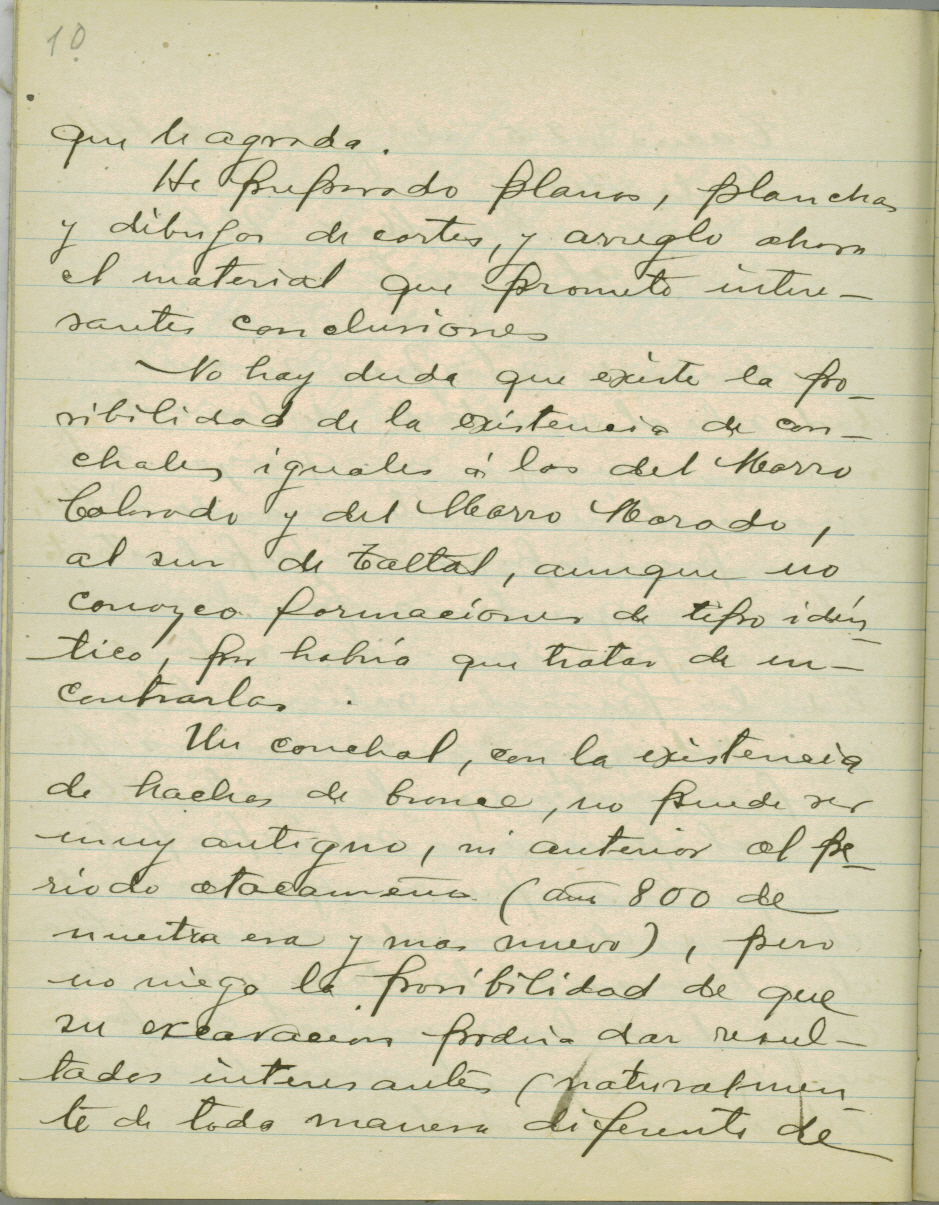 10
que le agrada.
He preparado planos, planchas
y dibujos de cortes, y arreglo ahora
el material que promete intere-
santes conclusiones
No hay duda que existe la po-
sibilidad de la existencia de con-
chales iguales á los del Morro
Colorado y del Morro Morado,
al sur de Taltal, aunque no
conozco formaciones de tipo idén-
tico, habría que tratar de en-
contrarlas.
Un conchal, con la existencia
de hachas de bronce, no puede ser
muy antiguo, ni anterior al pe-
ríodo atacameño (año 800 de
nuestra era y mas nuevo), pero
no niego la posibilidad de que
su excavacion podria dar resul-
tados interesantes (naturalmen-
te de toda manera diferente de